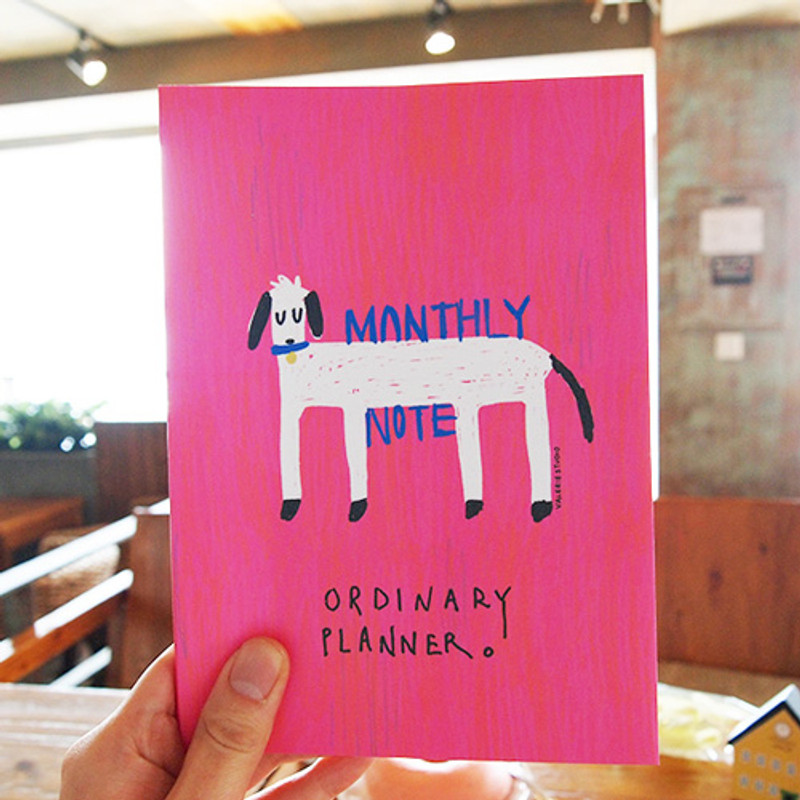 MONTHLY
NOTE
VALERIE STUDIO
ORDINARY
PLANNER.